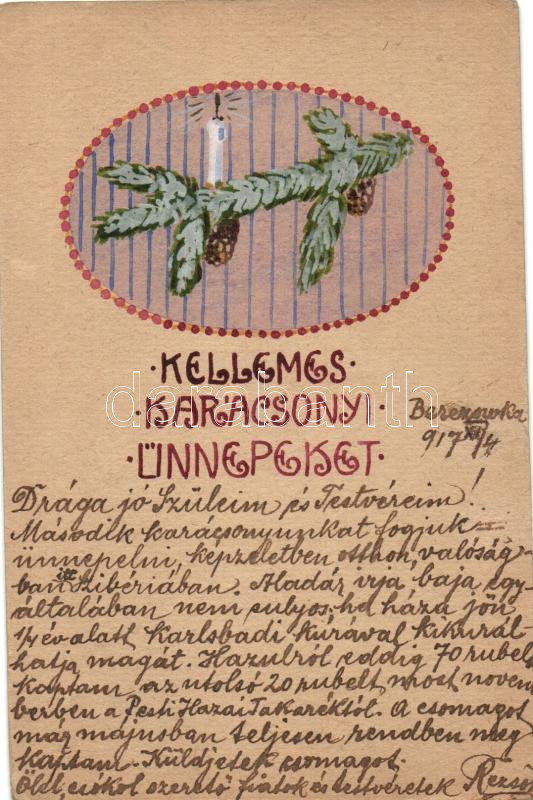 ·KELLEMES·
·KARÁCSONYI·
·ÜNNEPEKET·
darabanth
Berezowka
917 XII/4
Drága jó Szüleim és Testvéreim!
Második karácsonyunkat fogjuk
ünnepelni, képzeletben otthon, valóság-
ban itt Szibériában. Aladár irja baja egy-
általában nem sulyos. ha haza jön
1/4 év alatt Karlsbadi kúrával kikurál-
hatja magát. Hazulról eddig 70 rubelt
kaptam az utolsó 20 rubelt most novem
berben a Pesti Hazai Takaréktól. A csomagot
még májusban teljesen rendben meg
kaptam. Küldjetek csomagot.
Ölel, csókol szerető fiatok és testvéretek Rezső